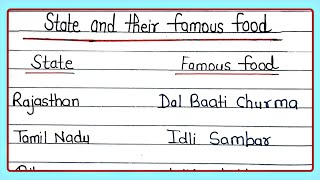 State and their famous food
State Famous food
Rajasthan Dal Baati Churma
Tamil Nadu Idli Sambar